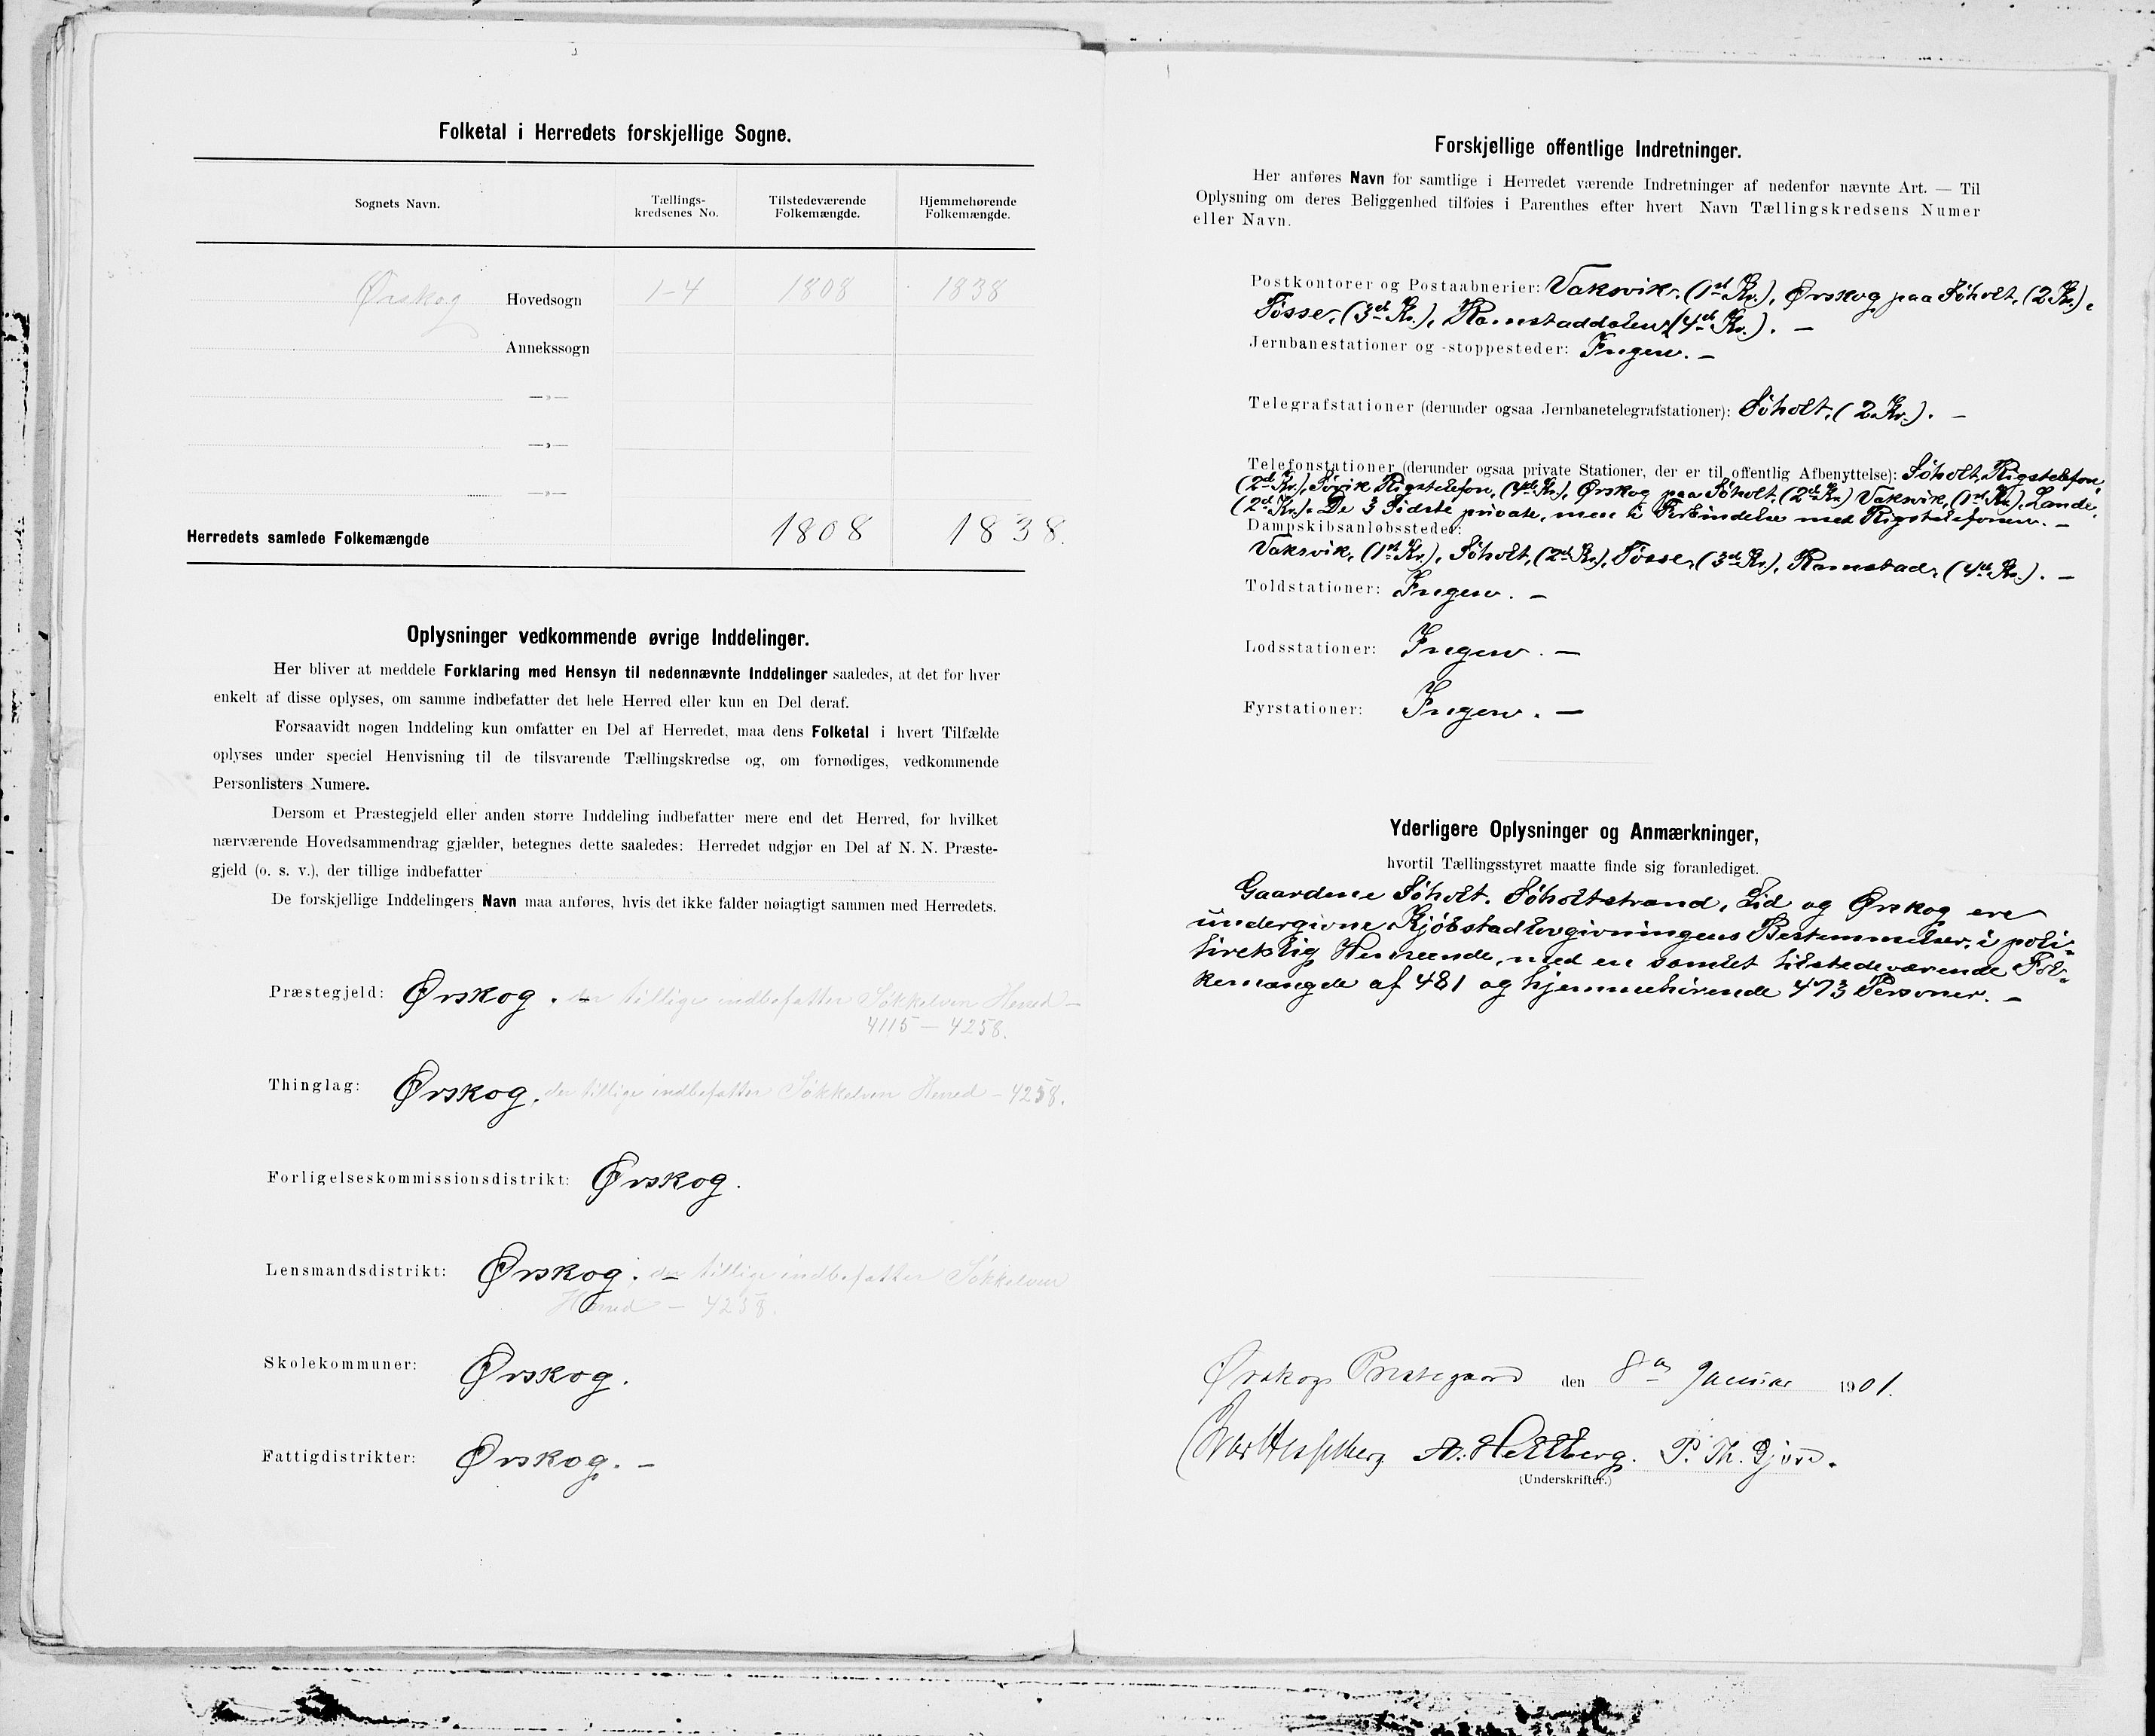 Folketal i Herredets forskjellige Sogne.
Sognets Navn.
Tællings-
kredsenes No.
Tilstedeværende
Folkemængde.
Hjemmehørende
Folkemængde.
Ørskog Hovedsogn 1-4 1808 1838
Annekssogn
—»—
—»—
—»—
Herredets samlede Folkemængde 1808 1838.
Oplysninger vedkommende øvrige Inddelinger.
Her bliver at meddele Forklaring med Hensyn til nedennævnte Inddelinger saaledes, at det for hver
enkelt af disse oplyses, om samme indbefatter det hele Herred eller kun en Del deraf.
Forsaavidt nogen Inddeling kun omfatter en Del af Herredet, maa dens Folketal i hvert Tilfælde
oplyses under speciel Henvisning til de tilsvarende Tællingskredse og, om fornødiges, vedkommende
Personlisters Numere.
Dersom et Præstegjeld eller anden større Inddeling indbefatter mere end det Herred, for hvilket
nærværende Hovedsammendrag gjælder, betegnes dette saaledes: Herredet udgjør en Del af N. N. Præste-
gjeld (o. s. v.), der tillige indbefatter
De forskjellige Inddelingers Navn maa anføres, hvis det ikke falder nøiagtigt sammen med Herredets.
Præstegjeld: Ørskog. — der tillige indbefatter Søkkelven Herred —
4115 — 4258.
Thinglag: Ørskog. der tillige indbefatter Søkkelven Herred — 4258.
Forligelseskommissionsdistrikt: Ørskog.
Lensmandsdistrikt: Ørskog. — der tillige indbefatter Søkkelven
Herred — 4258.
Skolekommuner: Ørskog.
Fattigdistrikter: Ørskog. —
Forskjellige offentlige Indretninger.
Her anføres Navn for samtlige i Herredet værende Indretninger af nedenfor nævnte Art. — Til
Oplysning om deres Beliggenhed tilføies i Parenthes efter hvert Navn Tællingskredsens Numer
eller Navn.
Postkontorer og Postaabnerier: Vaksvik. (1ste Kr.), Ørskog paa Søholt, (2 Kr.),
Tøsse, (3die Kr.), Ramstaddalen, (4de Kr.). —
Jernbanestationer og -stoppesteder: Ingen. —
Telegrafstationer (derunder ogsaa Jernbanetelegrafstationer): Søholt, (2 Kr.). —
Telefonstationer (derunder ogsaa private Stationer, der er til offentlig Afbenyttelse): Søholt, Rigstelefon,
(2det Kr.), Søvik Rigstelefon, (4de Kr.), Ørskog paa Søholt, (2det Kr.) Vaksvik, (1ste Kr.), Lande,
(2det Kr.). De 3 Sidste private, men i Forbindelse med Rigstelefonen. —
Dampskibsanløbssteder:
Vaksvik, (1ste Kr.), Søholt, (2det Kr.), Tøsse, (3die Kr.), Ramstad, (4de Kr.). —
Toldstationer: Ingen. —
Lodsstationer: Ingen. —
Fyrstationer: Ingen. —
Yderligere Oplysninger og Anmærkninger,
hvortil Tællingsstyret maatte finde sig foranlediget.
Gaardene Søholt, Søholtstrand, Lid og Ørskog ere
undergivne Kjøbstadlovgivningens Bestemmelser, i poli-
tirettlig Henseende, med en samlet tilstedeværende Fol-
kemængde af 481 og hjemmehørende 473 Personer. —
Ørskogs Prestegaard den 8de Januar 1901.
A. Hellberg. P. Th. Gjørv.
(Underskrifter.)